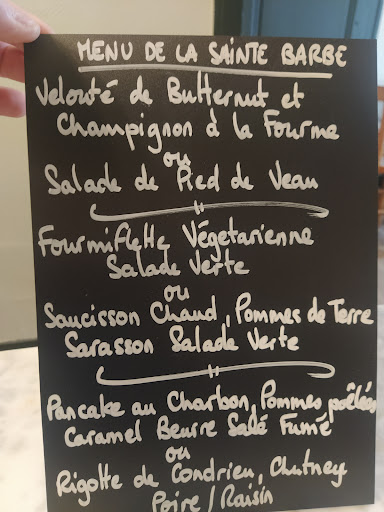 MENU DE LA SAINTE BARBE
Velouté de Butternut et
Champignon à la Fourme
ou
Salade de Pied de Veau
Fourmiflette Végétarienne
Salade Verte
ou
Saucisson Chaud, Pommes de Terre
Sarasson Salade Verte
Pancake au Charbon, Pommes poêlées
Caramel Beurre Salé Fumé
ou
Rigotte de Condrieu, Chutney
Poire / Raisin